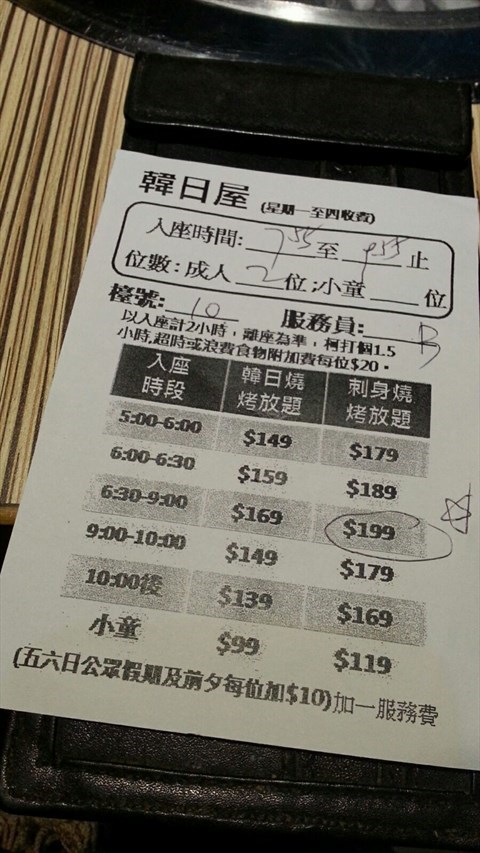 韓日屋 (星期一至四收費)
入座時間: 7:55 至 9:55 止
位數:成人 2 位;小童 位
檯號: 10 服務員: B
以入座計2小時,離座為準,柯打個1.5
小時,超時或浪費食物附加費每位$20。
入座時段 韓日燒烤放題 刺身燒烤放題
5:00-6:00 $149 $179
6:00-6:30 $159 $189
6:30-9:00 $169 $199
9:00-10:00 $149 $179
10:00後 $139 $169
小童 $99 $119
(五六日公眾假期及前夕每位加$10)加一服務費